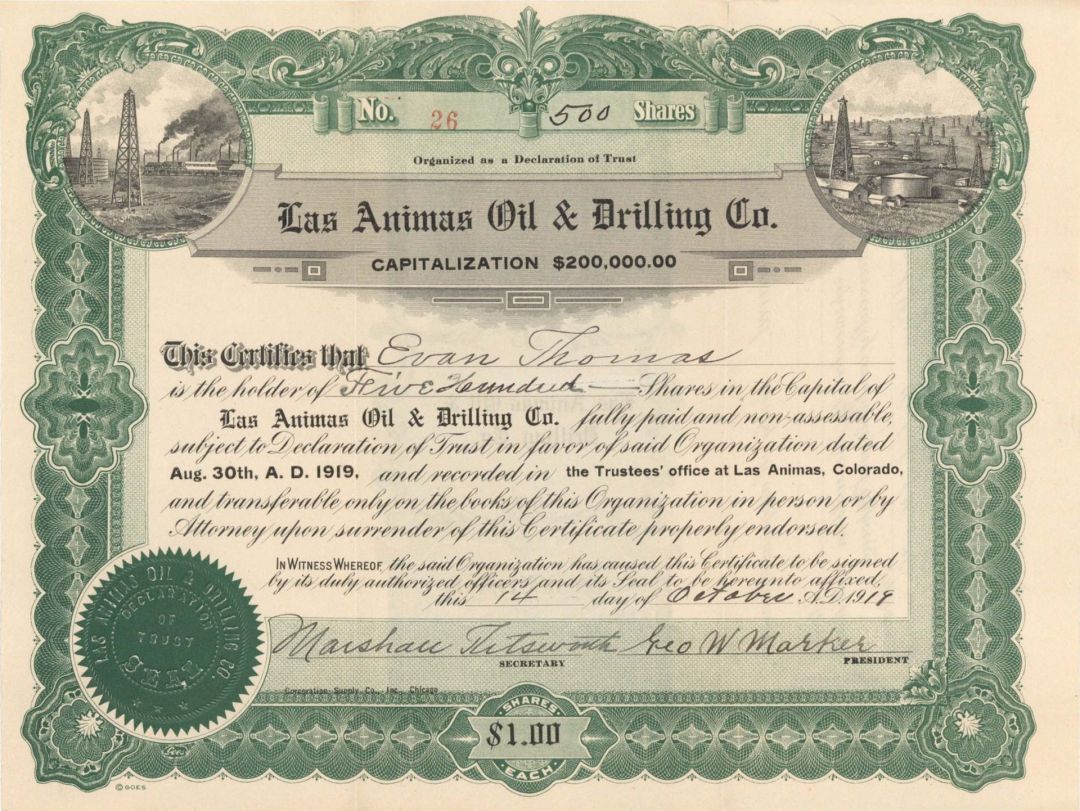 No. 26 500 Shares
Organized as a Declaration of Trust
Las Animas Oil & Drilling Co.
CAPITALIZATION $200,000.00
This Certifies that Evan Thomas
is the holder of Five Hundred Shares in the Capital of
Las Animas Oil & Drilling Co. fully paid and non-assessable,
subject to Declaration of Trust in favor of said Organization dated
Aug. 30th, A. D. 1919, and recorded in the Trustees' office at Las Animas, Colorado,
and transferable only on the books of this Organization in person or by
Attorney upon surrender of this Certificate properly endorsed.
IN WITNESS WHEREOF, the said Organization has caused this Certificate to be signed
by its duly authorized officers and its Seal to be hereunto affixed,
this 14 day of October A.D. 1919
LAS ANIMAS OIL & DRILLING CO.
DECLARATION
OF
TRUST
SEAL
Marshall Geo W Marker
SECRETARY
PRESIDENT
Corporation Supply Co., Inc., Chicago
SHARES
$1.00
EACH
Goes
© GOES